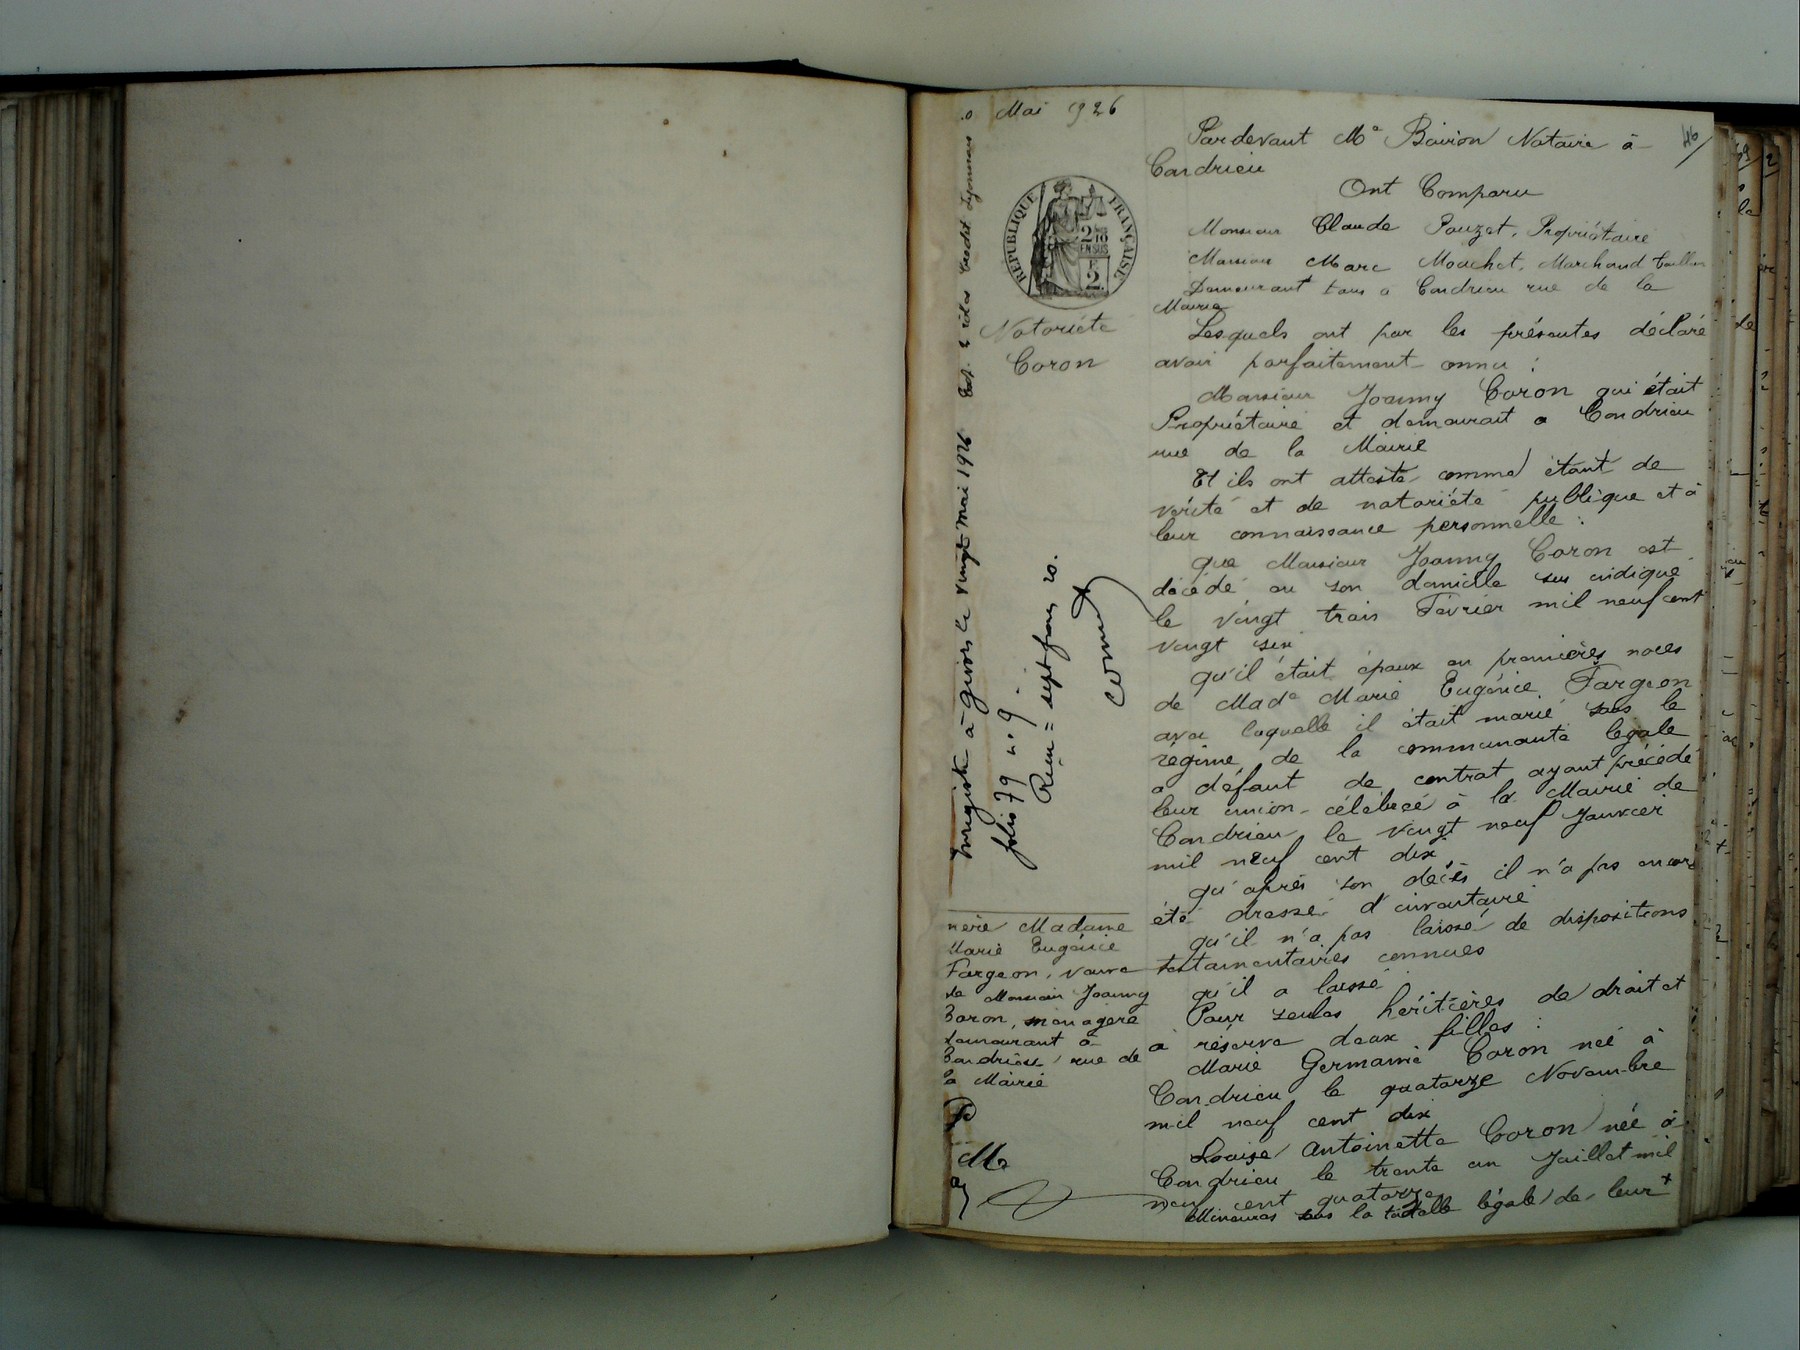 Mai 1926
46
RÉPUBLIQUE FRANÇAISE
2 10
EN SUS
2.
Notoriété
Coron
Pardevant Me Boiron Notaire à
Condrieu
Ont Comparu
Monsieur Claude Pouzet, Propriétaire
Monsieur Marc Mouchet, Marchand Tailleur
Demeurant tous a Condrieu rue de la
Mairie
Lesquels ont par les présentes déclaré
avoir parfaitement connu :
Monsieur Joanny Coron qui était
Propriétaire et demeurait a Condrieu
rue de la Mairie
Et ils ont attesté comme étant de
vérité et de notoriété publique et à
leur connaissance personnelle :
que Monsieur Joanny Coron est
décédé en son domicile sus indiqué
le vingt trois Février mil neuf cent
vingt six
qu'il était époux en premières noces
de Made Marie Eugénie Fargeon
avec laquelle il était marié sous le
régime de la communauté légale
a défaut de contrat ayant précédé
leur union célébrée à la Mairie de
Condrieu le vingt neuf Janvier
mil neuf cent dix
qu'après son décès il n'a pas encore
été dressé d'inventaire
qu'il n'a pas laissé de dispositions
testamentaires connues
qu'il a laissé
Pour seules héritières de droit et
à réserve deux filles :
Marie Germaine Coron née à
Condrieu le quatorze Novembre
mil neuf cent dix
Louise Antoinette Coron née à
Condrieu le trente un Juillet mil
neuf cent quatorze
Mineures sous la tutelle légale de leur +
Enregistré à Givors le vingt Mai 1926
folio 79 n. 9
Reçu = sept francs 20.
rôles Credit Lyonnais
mère Madame
Marie Eugénie
Fargeon, veuve
de Monsieur Joanny
Coron, ménagère
demeurant à
Condrieu rue de
la Mairie